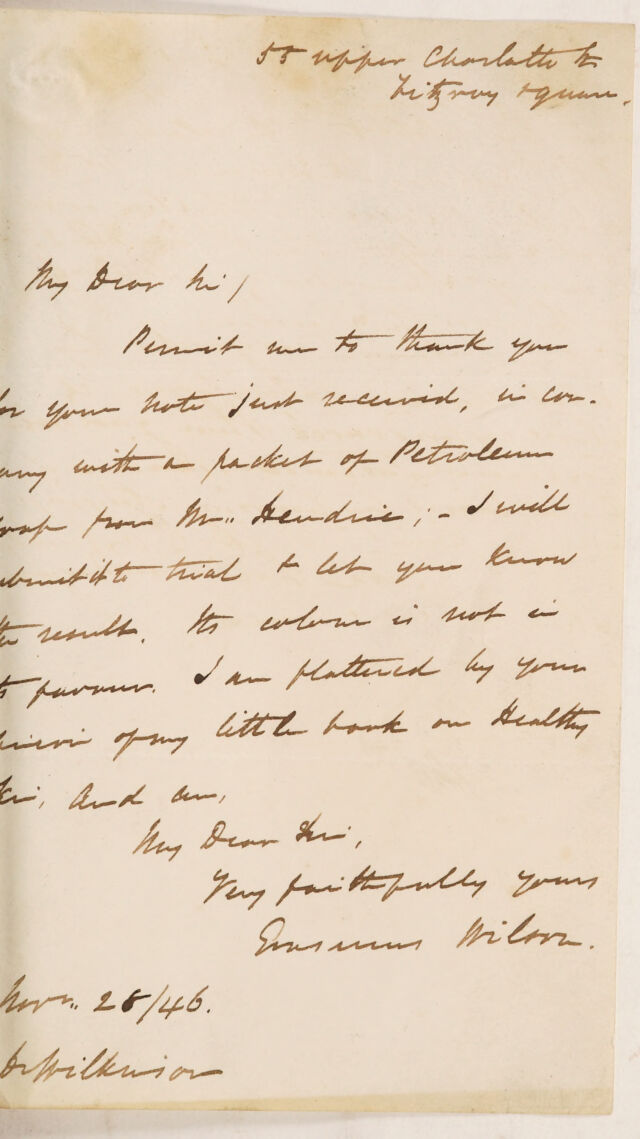 55 Upper Charlotte St
Fitzroy Square.
My Dear Sir/
Permit me to thank you
for your note just received, in com-
pany with a packet of Petroleum
soap from Mr. Hendrie; - I will
submit it to trial & let you know
the result. Its colour is not in
its favour. I am flattered by your
opinion of my little book on Healthy
Skin, and am,
My Dear Sir,
Very faithfully yours
Erasmus Wilson.
Novr. 28/46.
Dr Wilkinson